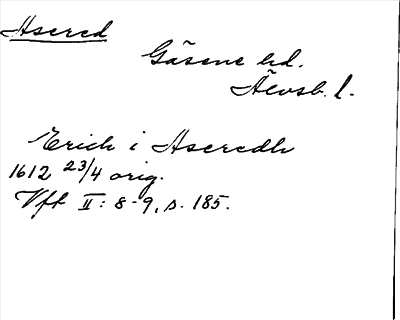 Asered
Gäsene hd.
Älvsb. l.
Erich i Aseredh
1612 23/4 orig.
Vft II: 8-9, s. 185.